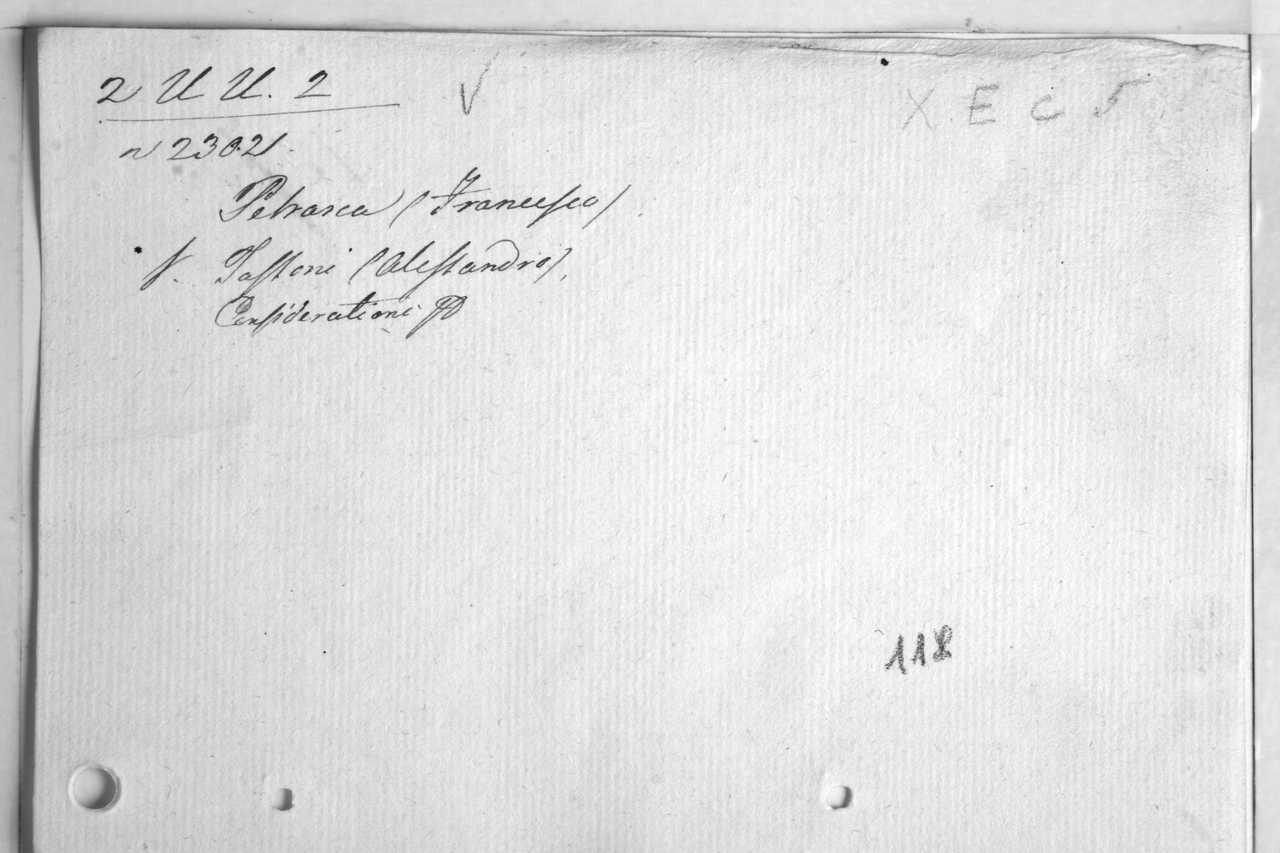 2 U U. 2 √ X. E C 5
n 23021.
Petrarca (Francesco)
V. Tassoni (Alessandro),
Considerationi
118